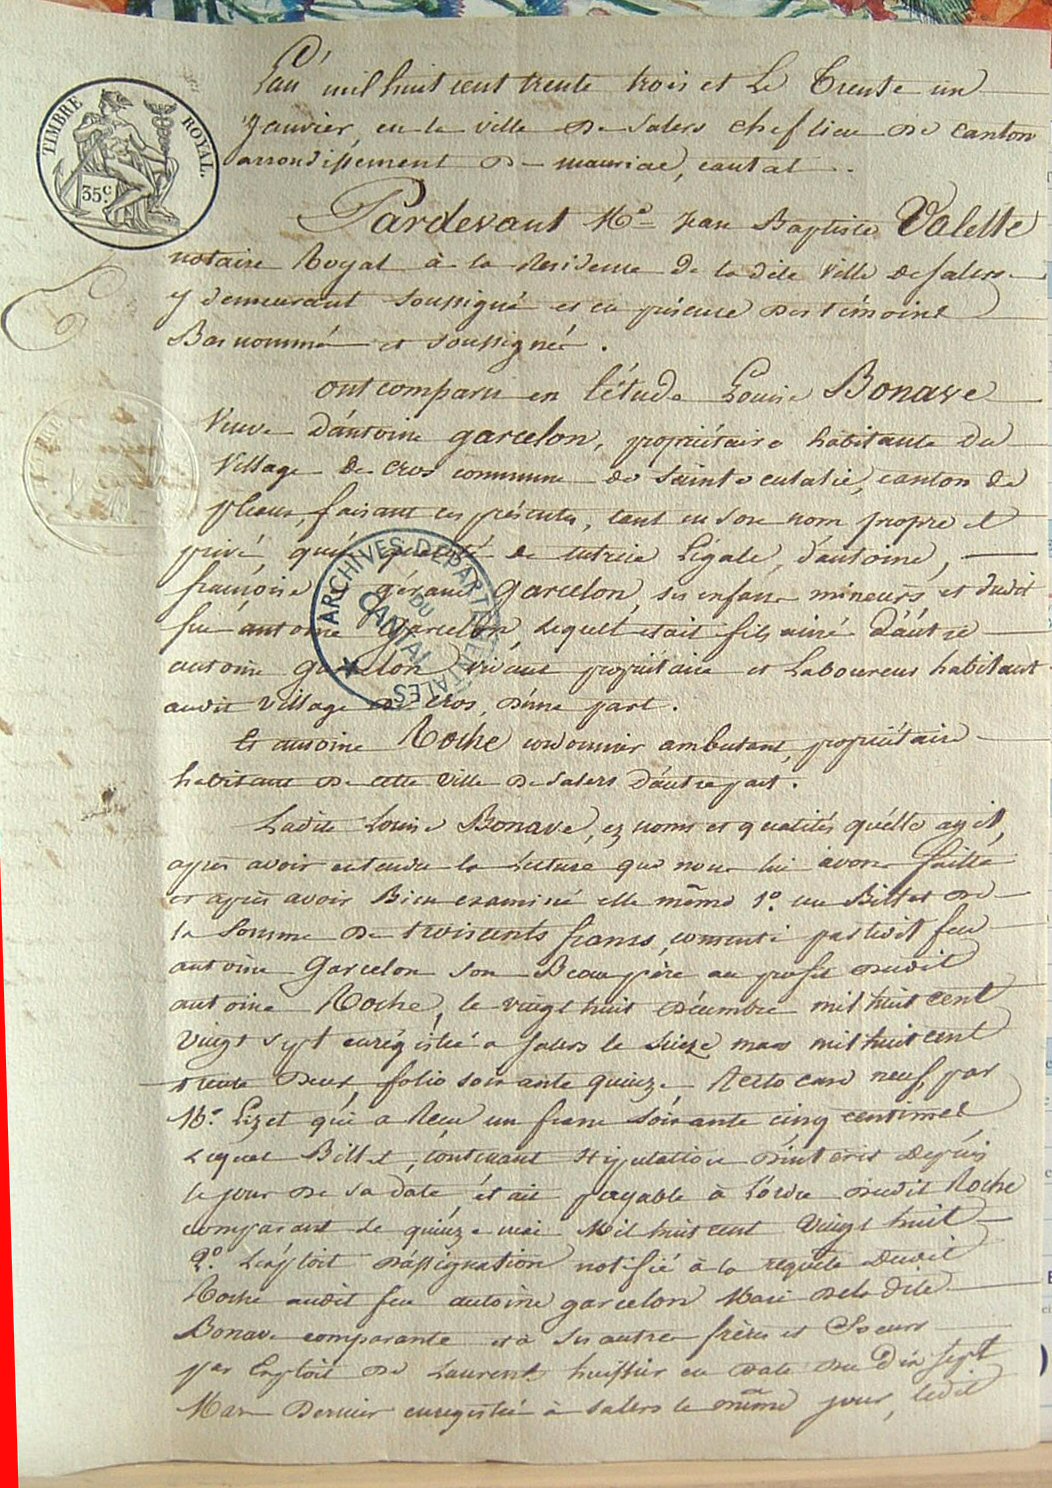 TIMBRE ROYAL.
35 c.
L'an mil huit cent trente trois et Le Trente un
Janvier, en la ville de Salers chef lieu de canton
arrondissement de mauriac, cantal.
Pardevant Me Jean Baptiste Valette
notaire Royal à la Residence de la dite ville de Salers
y demeurant soussigné et en présence des témoins
Bas nommés et soussignés.
ont comparu en l'étude Louise Bonave
Veuve d'antoine garcelon, propriétaire habitante du
Village de cros commune de Sainte eulalie, canton de
pleaux, faisant ces présentes, tant en son nom propre et
privé qu'en qualité de tutrice Légale, d'antoine,
françoise géraud Garcelon, ses enfans mineurs et dudit
feu antoine Garcelon, lequel etait fils ainé d'autre
antoine garcelon vivant propriétaire et Laboureur habitant
audit village de cros, d'une part.
Et antoine Roche cordonnier ambulant, propriétaire
habitant de cette ville de Salers d'autre part.
Ladite Louise Bonave, ez noms et qualités qu'elle agit,
après avoir entendu la Lecture que nous lui avons faitte
et après avoir Bien examiné elle même 1º. un Billet de
la Somme de troiscents francs, consenti par ledit feu
antoine Garcelon son Beau père au profit dudit
antoine Roche, le vingt huit décembre mil huit cent
vingt sept enrégistré a Salers le seize mars mil huit cent
trente deux, folio soixante quinze Recto case neuf, par
Mr. Lizet qui a Recu un franc soixante cinq centimes
Lequel Billet, contenant stipulation d'intérêt depuis
le jour de sa date était payable à L'ordre dudit Roche
comparant le quinze mai Mil huit cent vingt huit
2º. L'exploit d'assignation notifié à la requête dudit
Roche audit feu antoine garcelon Mari de la dite
Bonave comparante et à ses autres frères et Soeurs
par Exploit de Laurent huissier en date du Dix Sept
Mars Dernier enregistré à Salers le même jour, ledit
ARCHIVES DÉPARTEMENTALES
DU
CANTAL